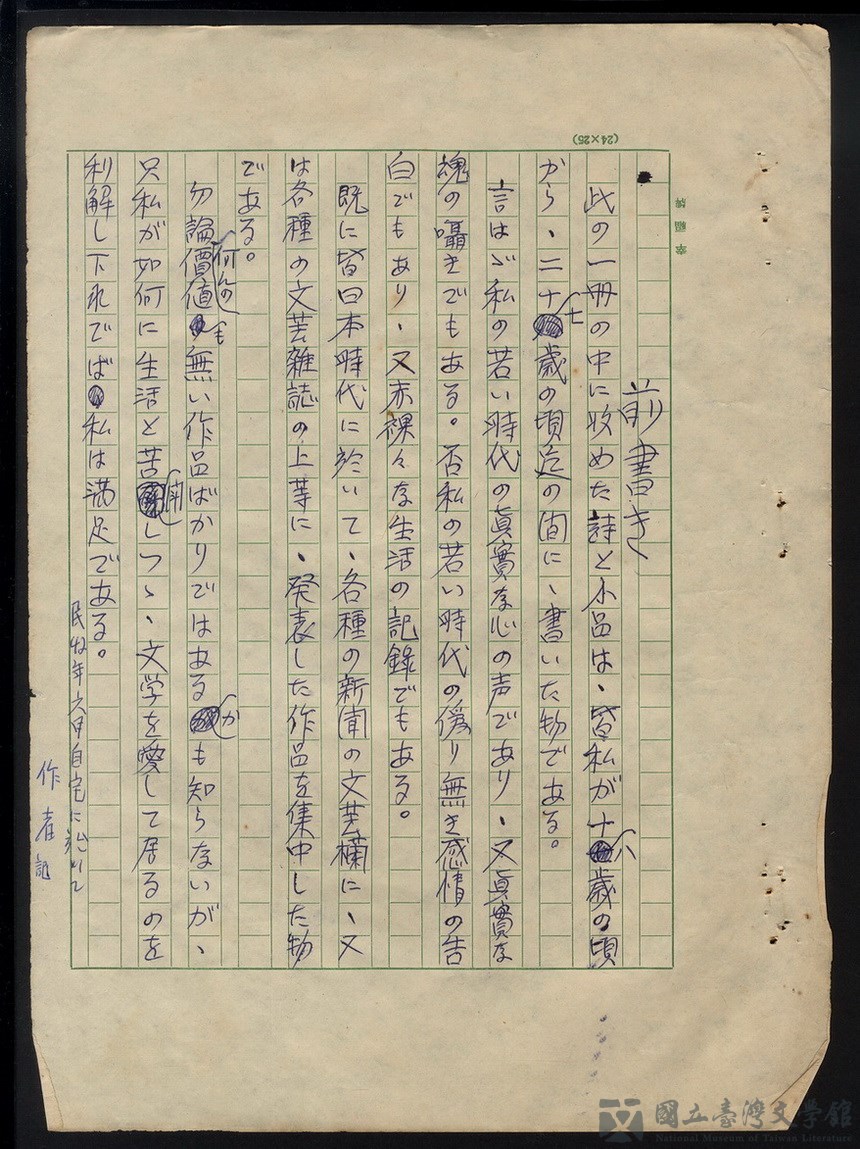 前書き
此の一冊の中に收めた詩と小品は、皆私が十八歳の頃
から、二十七歳の頃迄の間に、書いた物である。
言はゞ私の若い時代の眞實な心の声であり、又眞實な
魂の囁きでもある。否私の若い時代の僞り無き感情の告
白でもあり、又赤裸々な生活の記録でもある。
既に皆日本時代に於いて、各種の新聞の文芸欄に、又
は各種の文芸雑誌の上等に、発表した作品を集中した物
である。
勿論何の價値も無い作品ばかりではあるかも知らないが、
只私が如何に生活と苦闘しつゝ、文学を愛して居るのを
利解し下れでば私は満足である。
年六月自宅に於いて
作者記
(24×25)
幸福牌
國立臺灣文學館
National Museum of Taiwan Literature